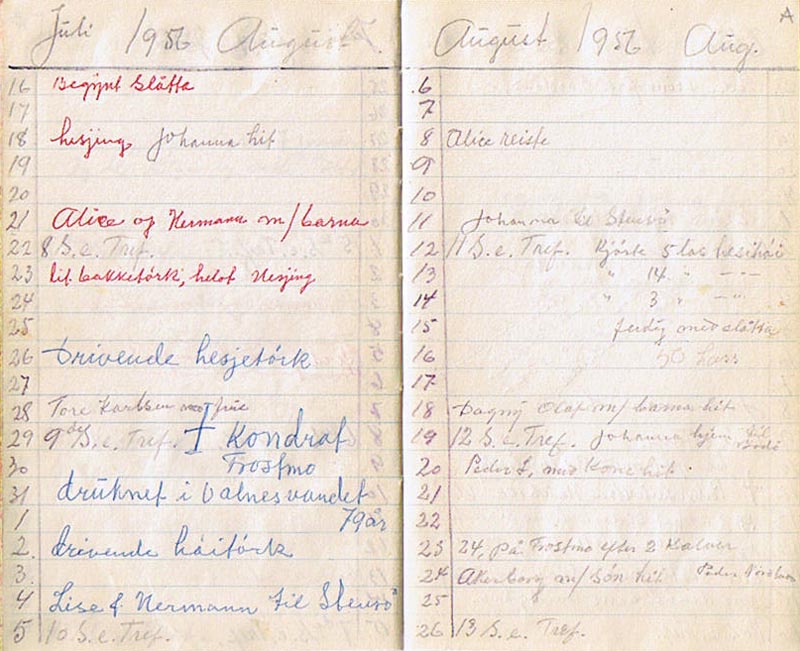 Juli 1956 August
16 Begynt Slåtta
17
18 hesjing Johanna hit
19
20
21 Alice og Hermann m/barna
22 8 S.e. Tref.
23 lit bakketörk, helst Hesjing
24
25
26 Drivende hesjetörk
27
28 Tore Karlsen med frue
29 9de S.e. Tref. I Kondraf
30 Trostmo
31 drüknet i Valnesvandet
1 79 år
2. drivende häitörk
3.
4 Lise & Hermann til
5 10 S.e. Tref.
August 1956 Aug. A
6
7
8 Alice reiste
9
10
11 Johanna til
12 11 S.e. Tref. Kjörte 5 las hesihöi
13 " 14 " — " —
14 " 3 " — " —
15 ferdig med slåtta
16 50 Lass
17
18 Dagny Olaf m/barna hit
19 12 S.e. Tref. Johanna hjem til
20 Peder med Kone hit.
21
22
23 24, på Trostmo efter 2 Kalver
24 m/sön hit Peder
25
26 13 S.e. Tref.